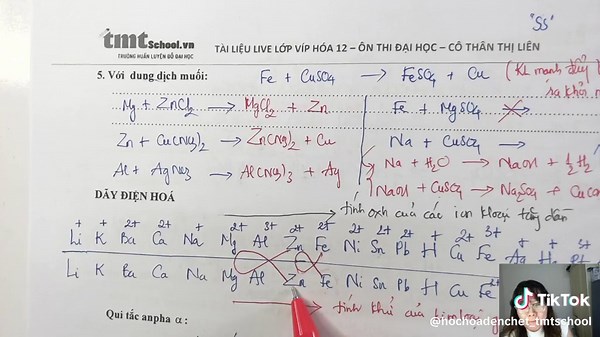 "SS"
tmtschool.vn
TRƯỜNG HUẤN LUYỆN ĐỖ ĐẠI HỌC
TÀI LIỆU LIVE LỚP VÍP HÓA 12 – ÔN THI ĐẠI HỌC – CÔ THÂN THỊ LIÊN
5. Với dung dịch muối: Fe + CuSO4 → FeSO4 + Cu (KL mạnh đẩy
ra khỏi
Mg + ZnCl2 → MgCl2 + Zn
Fe + MgSO4
Zn + Cu(NO3)2 → Zn(NO3)2 + Cu
Na + CuSO4 →
Al + AgNO3 → Al(NO3)3 + Ag
Na + H2O → NaOH + ½H2
NaOH + CuSO4 → Na2SO4 +
DÃY ĐIỆN HOÁ
tính oxh của các ion kloại tăng dần
Li+ K+ Ba2+ Ca2+ Na+ Mg2+ Al3+ Zn2+ Fe2+ Ni2+ Sn2+ Pb2+ H+ Cu2+ Fe3+ Ag+
Li K Ba Ca Na Mg Al Zn Fe Ni Sn Pb H Cu Fe2+
tính khử của kim loại
Qui tắc anpha α:
TikTok
@hochoadenchet_tmtschool